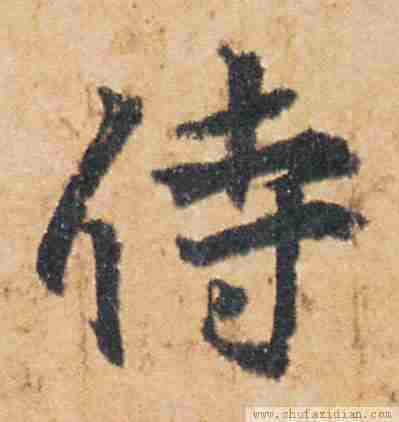 侍
www.shufazidian.com